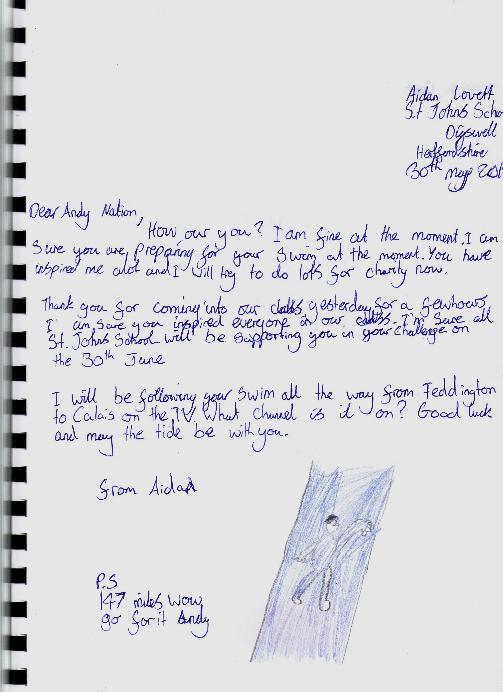 Aidan Lovett
St Johns Scho
Digswell
Hertfordshire
30th may
Dear Andy Nation,
How our you? I am fine at the moment. I am
sure you are preparing for your swim at the moment. You have
inspired me alot and I will try to do lots for charity now.
Thank you for coming into our class yesterday for a few hours
I am sure you inspired everyone in our class. I'm sure all
St. Johns School will be supporting you in your challenge on
the 30th June
I will be following your swim all the way from Teddington
to Calais on the TV. What channel is it on? Good luck
and may the tide be with you.
from Aidan
P.S
147 miles wow
go for it Andy